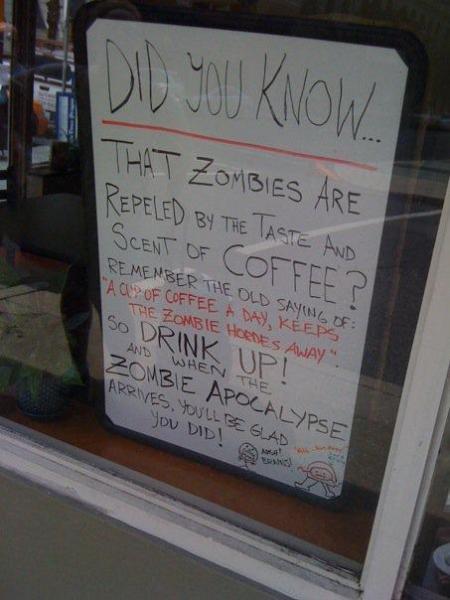 DID YOU KNOW...
THAT ZOMBIES ARE
REPELED BY THE TASTE AND
SCENT OF COFFEE?
REMEMBER THE OLD SAYING OF:
"A CUP OF COFFEE A DAY, KEEPS
THE ZOMBIE HORDES AWAY"
SO DRINK UP!
AND WHEN THE
ZOMBIE APOCALYPSE
ARRIVES, YOU'LL BE GLAD
YOU DID!
BRAINS!